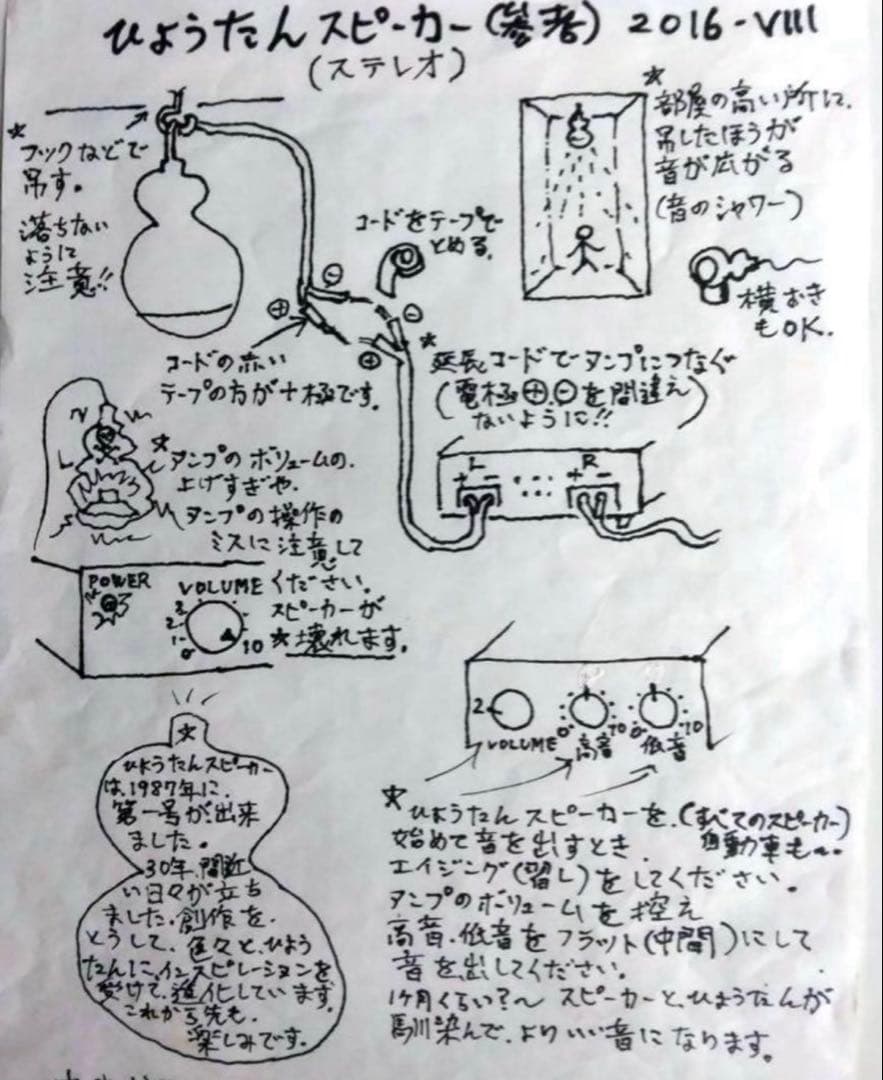 ひょうたんスピーカー(参考) 2016-VIII
(ステレオ)
★
フックなどで
吊す。
落ちない
ように
注意!!
コードをテープで
とめる。
★
部屋の高い所に、
吊したほうが
音が広がる
(音のシャワー)
横むき
もOK.
⊖
⊕
⊖
⊕
コードの赤い
テープの方が+極です。
★
延長コードでアンプにつなぐ
(電極⊕.⊖を間違え
ないように!!)
L
R
+ -
+ -
★
アンプのボリュームの、
上げすぎや、
アンプの操作の
ミスに注意して
ください。
スピーカーが
★壊れます。
POWER
VOLUME
3
2
1
0
10
2
VOLUME
0 10
高音
0 10
低音
★
ひょうたんスピーカー
は、1987年に、
第一号が出来
ました。
30年、間近
い日々が立ち
ました。創作を、
とうして、色々と、ひょう
たんに、インスピレーションを
受けて、進化しています。
これから先も、
楽しみです。
★
ひょうたんスピーカーを、(すべてのスピーカー)
自動車も〜
始めて音を出すとき、
エイジング(習し)をしてください。
アンプのボリュームを控え
高音、低音をフラット(中間)にして
音を出してください。
1ヶ月くらい?〜スピーカーと、ひょうたんが
馴染んで、よりいい音になります。